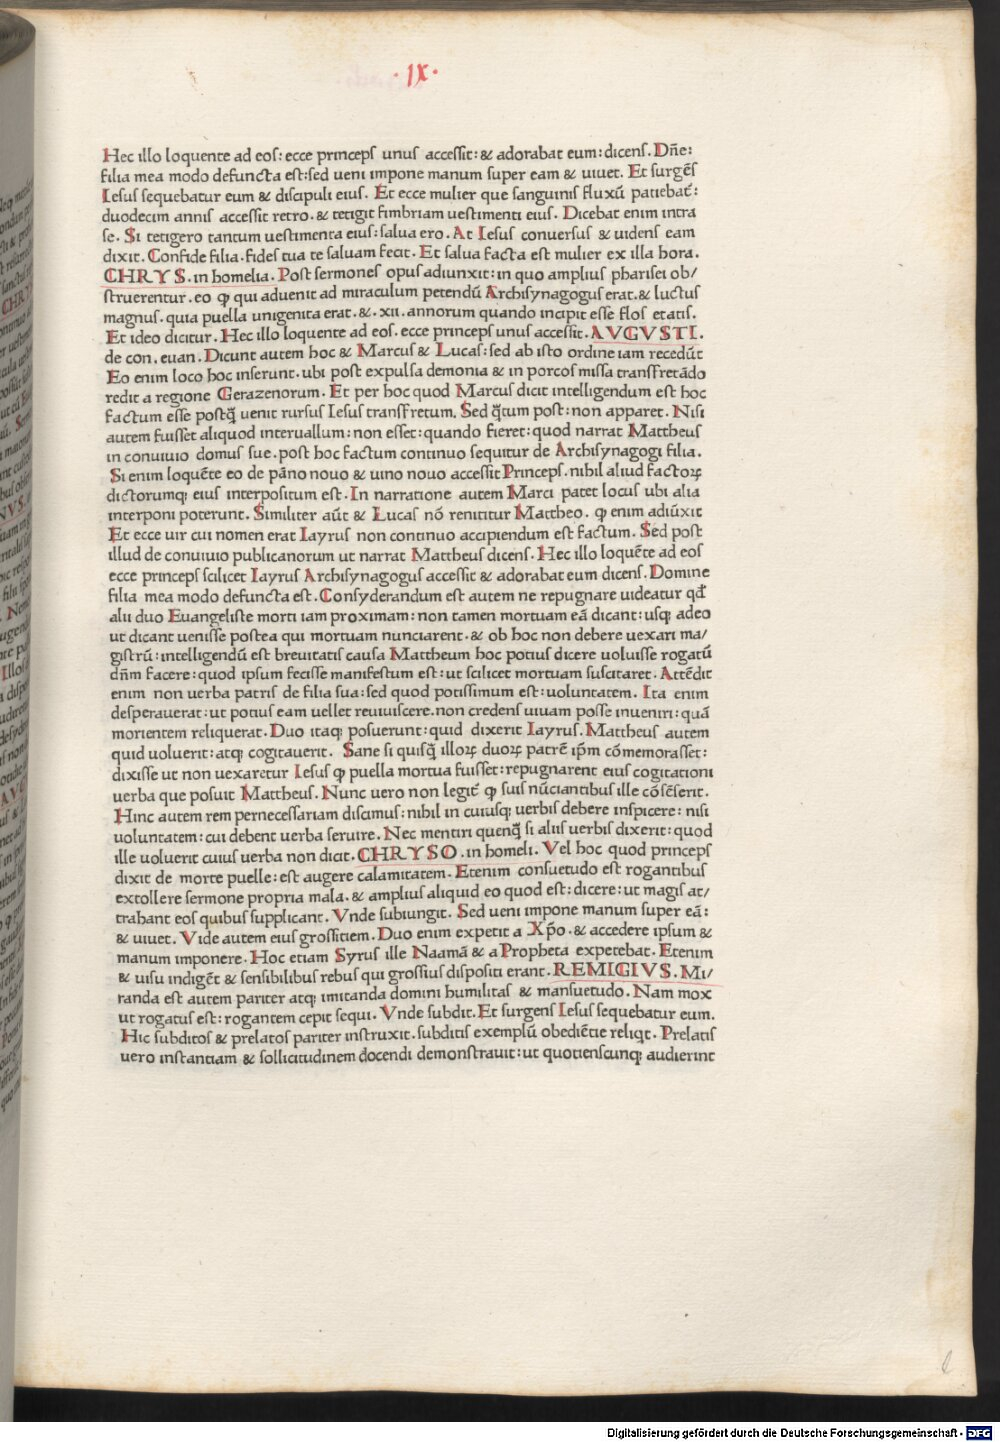 · IX ·
Hec illo loquente ad eos: ecce princeps unus accessit: & adorabat eum: dicens. Dñe:
filia mea modo defuncta est: sed ueni impone manum super eam & uiuet. Et surgẽs
Iesus sequebatur eum & discipuli eius. Et ecce mulier que sanguinis fluxũ patiebat̃:
duodecim annis accessit retro. & tetigit fimbriam uestimenti eius. Dicebat enim intra
se. Si tetigero tantum uestimenta eius: salua ero. At Iesus conuersus & uidens eam
dixit. Confide filia. fides tua te saluam fecit. Et salua facta est mulier ex illa hora.
CHRYS. in homelia. Post sermones opus adiunxit: in quo amplius pharisei ob/
struerentur. eo ꝙ qui aduenit ad miraculum petendũ Archisynagogus erat. & luctus
magnus. quia puella unigenita erat. &. xii. annorum quando incipit esse flos etatis.
Et ideo dicitur. Hec illo loquente ad eos. ecce princeps unus accessit. AVGVSTI.
de con. euan. Dicunt autem hoc & Marcus & Lucas: sed ab isto ordine iam recedũt
Eo enim loco hoc inserunt. ubi post expulsa demonia & in porcos missa transfretãdo
redit a regione Gerazenorum. Et per hoc quod Marcus dicit intelligendum est hoc
factum esse postq̃ uenit rursus Iesus transfretum. Sed q̃tum post: non apparet. Nisi
autem fuisset aliquod interuallum: non esset: quando fieret: quod narrat Mattheus
in conuiuio domus sue. post hoc factum continuo sequitur de Archisynagogi filia.
Si enim loquẽte eo de pãno nouo & uino nouo accessit Princeps. nihil aliud factoꝝ
dictorumqꝫ eius interpositum est. In narratione autem Marci patet locus ubi alia
interponi poterunt. Similiter aũt & Lucas nõ renititur Mattheo. ꝙ enim adiũxit
Et ecce uir cui nomen erat Iayrus non continuo accipiendum est factum. Sed post
illud de conuiuio publicanorum ut narrat Mattheus dicens. Hec illo loquẽte ad eos
ecce princeps scilicet Iayrus Archisynagogus accessit & adorabat eum dicens. Domine
filia mea modo defuncta est. Consyderandum est autem ne repugnare uideatur qđ
alii duo Euangeliste morti iam proximam: non tamen mortuam eã dicant: usqꝫ adeo
ut dicant uenisse postea qui mortuam nunciarent. & ob hoc non debere uexari ma/
gistrũ: intelligendũ est breuitatis causa Mattheum hoc potius dicere uoluisse rogatũ
dñm facere: quod ipsum fecisse manifestum est: ut scilicet mortuam suscitaret. Attẽdit
enim non uerba patris de filia sua: sed quod potissimum est: uoluntatem. Ita enim
desperauerat: ut potius eam uellet reuiuiscere. non credens uiuam posse inueniri: quã
morientem reliquerat. Duo itaqꝫ posuerunt: quid dixerit Iayrus. Mattheus autem
quid uoluerit: atqꝫ cogitauerit. Sane si quisq̃ illoꝝ duoꝝ patrẽ ip̃m cõmemorasset:
dixisse ut non uexaretur Iesus ꝙ puella mortua fuisset: repugnarent eius cogitationi
uerba que posuit Mattheus. Nunc uero non legit̃ ꝙ suis nũciantibus ille cõsẽserit.
Hinc autem rem pernecessariam discimus: nihil in cuiusqꝫ uerbis debere inspicere: nisi
uoluntatem: cui debent uerba seruire. Nec mentiri quenq̃ si aliis uerbis dixerit: quod
ille uoluerit cuius uerba non dicit. CHRYSO. in homeli. Vel hoc quod princeps
dixit de morte puelle: est augere calamitatem. Etenim consuetudo est rogantibus
extollere sermone propria mala. & amplius aliquid eo quod est: dicere: ut magis at/
trahant eos quibus supplicant. Vnde subiungit. Sed ueni impone manum super eã:
& uiuet. Vide autem eius grossitiem. Duo enim expetit a Xp̃o. & accedere ipsum &
manum imponere. Hoc etiam Syrus ille Naamã & a Propheta expetebat. Etenim
& uisu indigẽt & sensibilibus rebus qui grossius dispositi erant. REMIGIVS. Mi/
randa est autem pariter atqꝫ imitanda domini humilitas & mansuetudo. Nam mox
ut rogatus est: rogantem cepit sequi. Vnde subdit. Et surgens Iesus sequebatur eum.
Hic subditos & prelatos pariter instruxit. subditis exemplũ obediẽtie reliqt. Prelatis
uero instantiam & sollicitudinem docendi demonstrauit: ut quotienscunqꝫ audierint
Digitalisierung gefördert durch die Deutsche Forschungsgemeinschaft - DFG